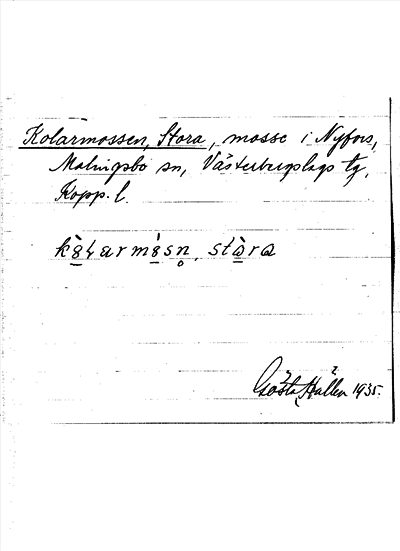 Kolarmossen, Stora, mosse i Nyfors,
Malingsbo sn, Västerbergslags tg,
Kopp. l.
kò̲larmó̲sn̥, stò̲ra
Gösta Hallén 1935.